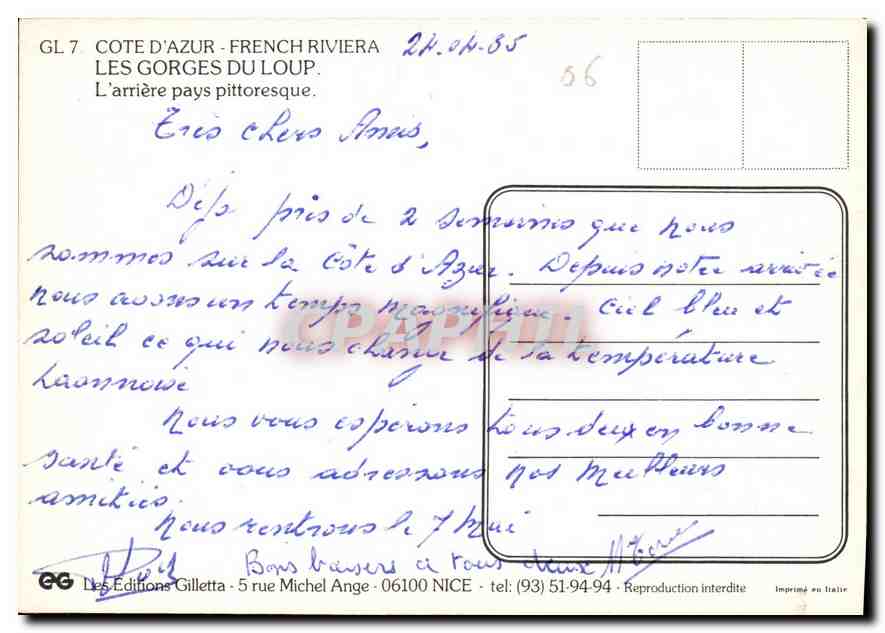 GL 7 COTE D'AZUR - FRENCH RIVIERA 24.04.85
LES GORGES DU LOUP.
L'arrière pays pittoresque.
06
Très chers Amis,
Déjà près de 2 semaines que nous
sommes sur la Côte d'Azur. Depuis notre arrivée
nous avons un temps magnifique. Ciel bleu et
soleil ce qui nous change de la température
Laonnoise
Nous vous espérons tous deux en bonne
santé et vous adressons nos meilleurs
amitiés.
Nous rentrons le 7 Mai
Bons baisers à tous deux
CPAPHIL
EG Les Éditions Gilletta - 5 rue Michel Ange - 06100 NICE - tel: (93) 51-94-94 - Reproduction interdite Imprimé en Italie